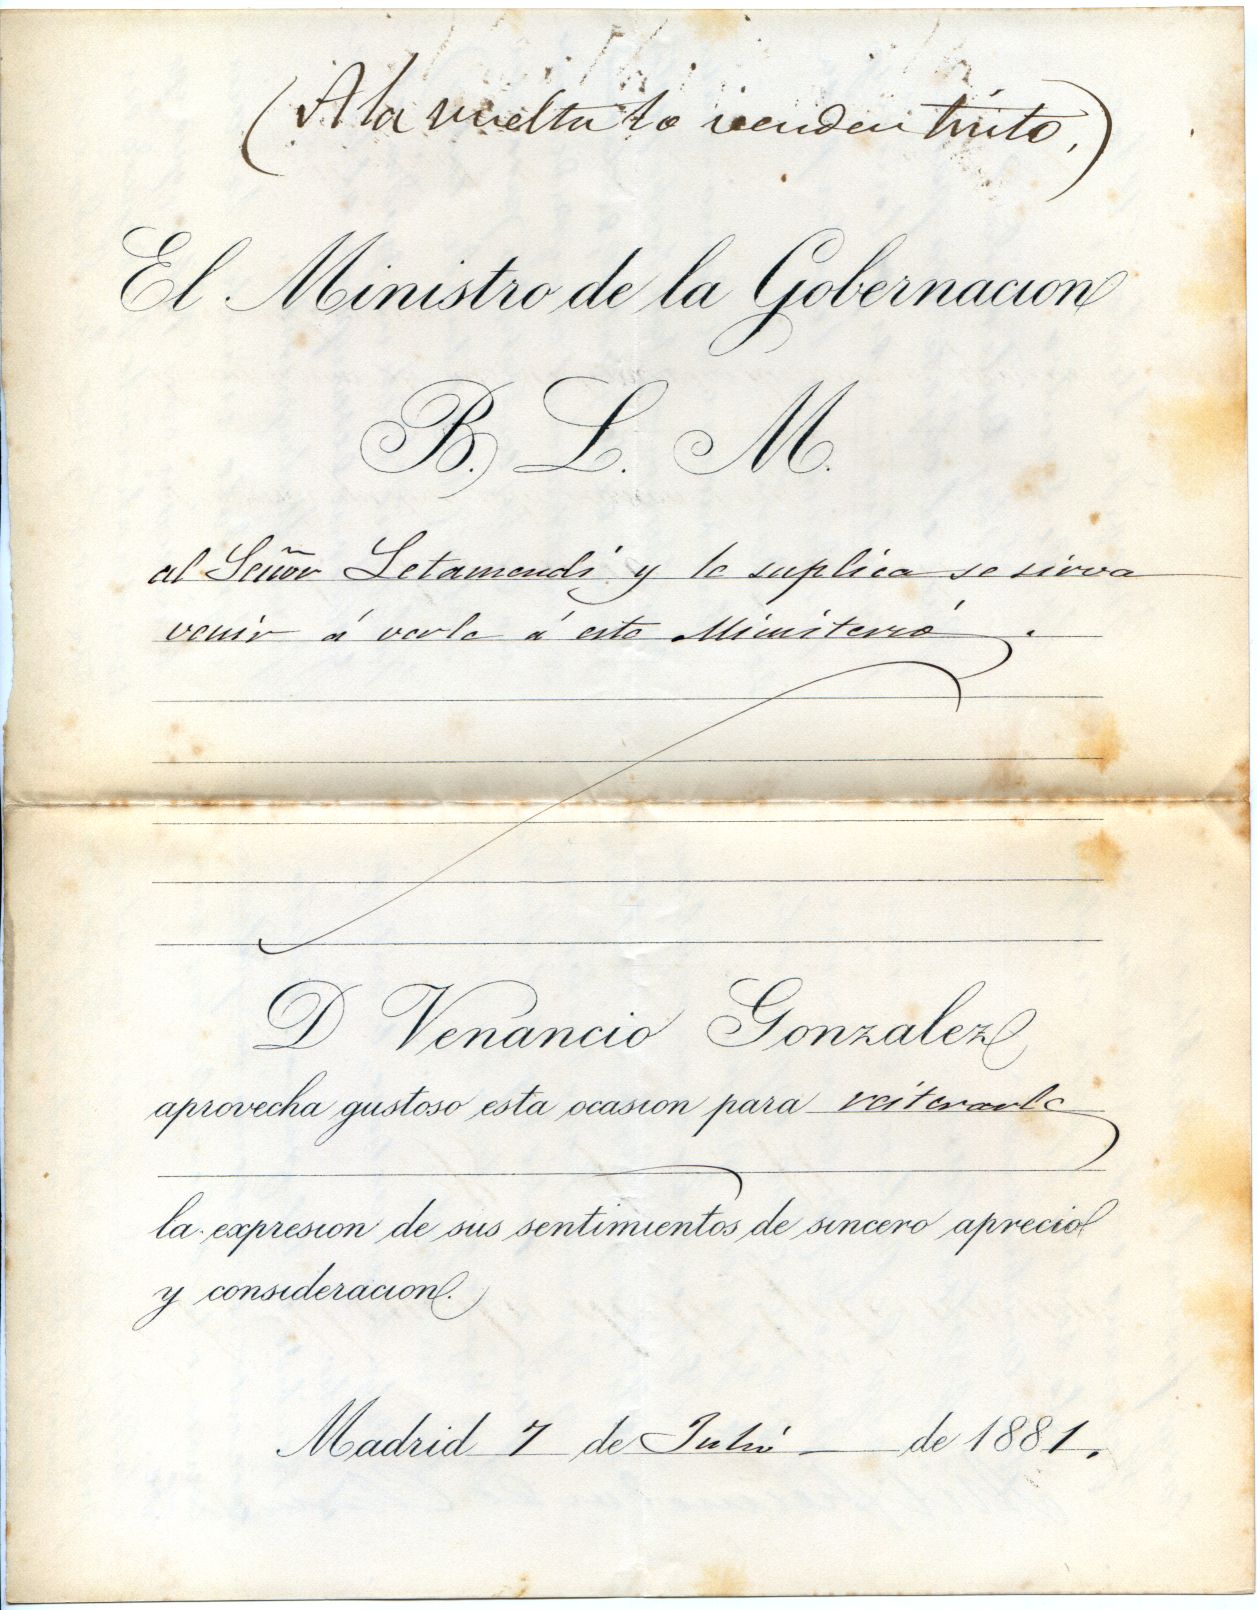 (A la vuelta lo venden tinto,)
El Ministro de la Gobernacion
B. L. M.
al Señor Letamendi y le suplica se sirva
venir á verle á este Ministerio.
D Venancio Gonzalez
aprovecha gustoso esta ocasion para reiterarle
la expresion de sus sentimientos de sincero aprecio
y consideracion.
Madrid 7 de Julio de 1881.